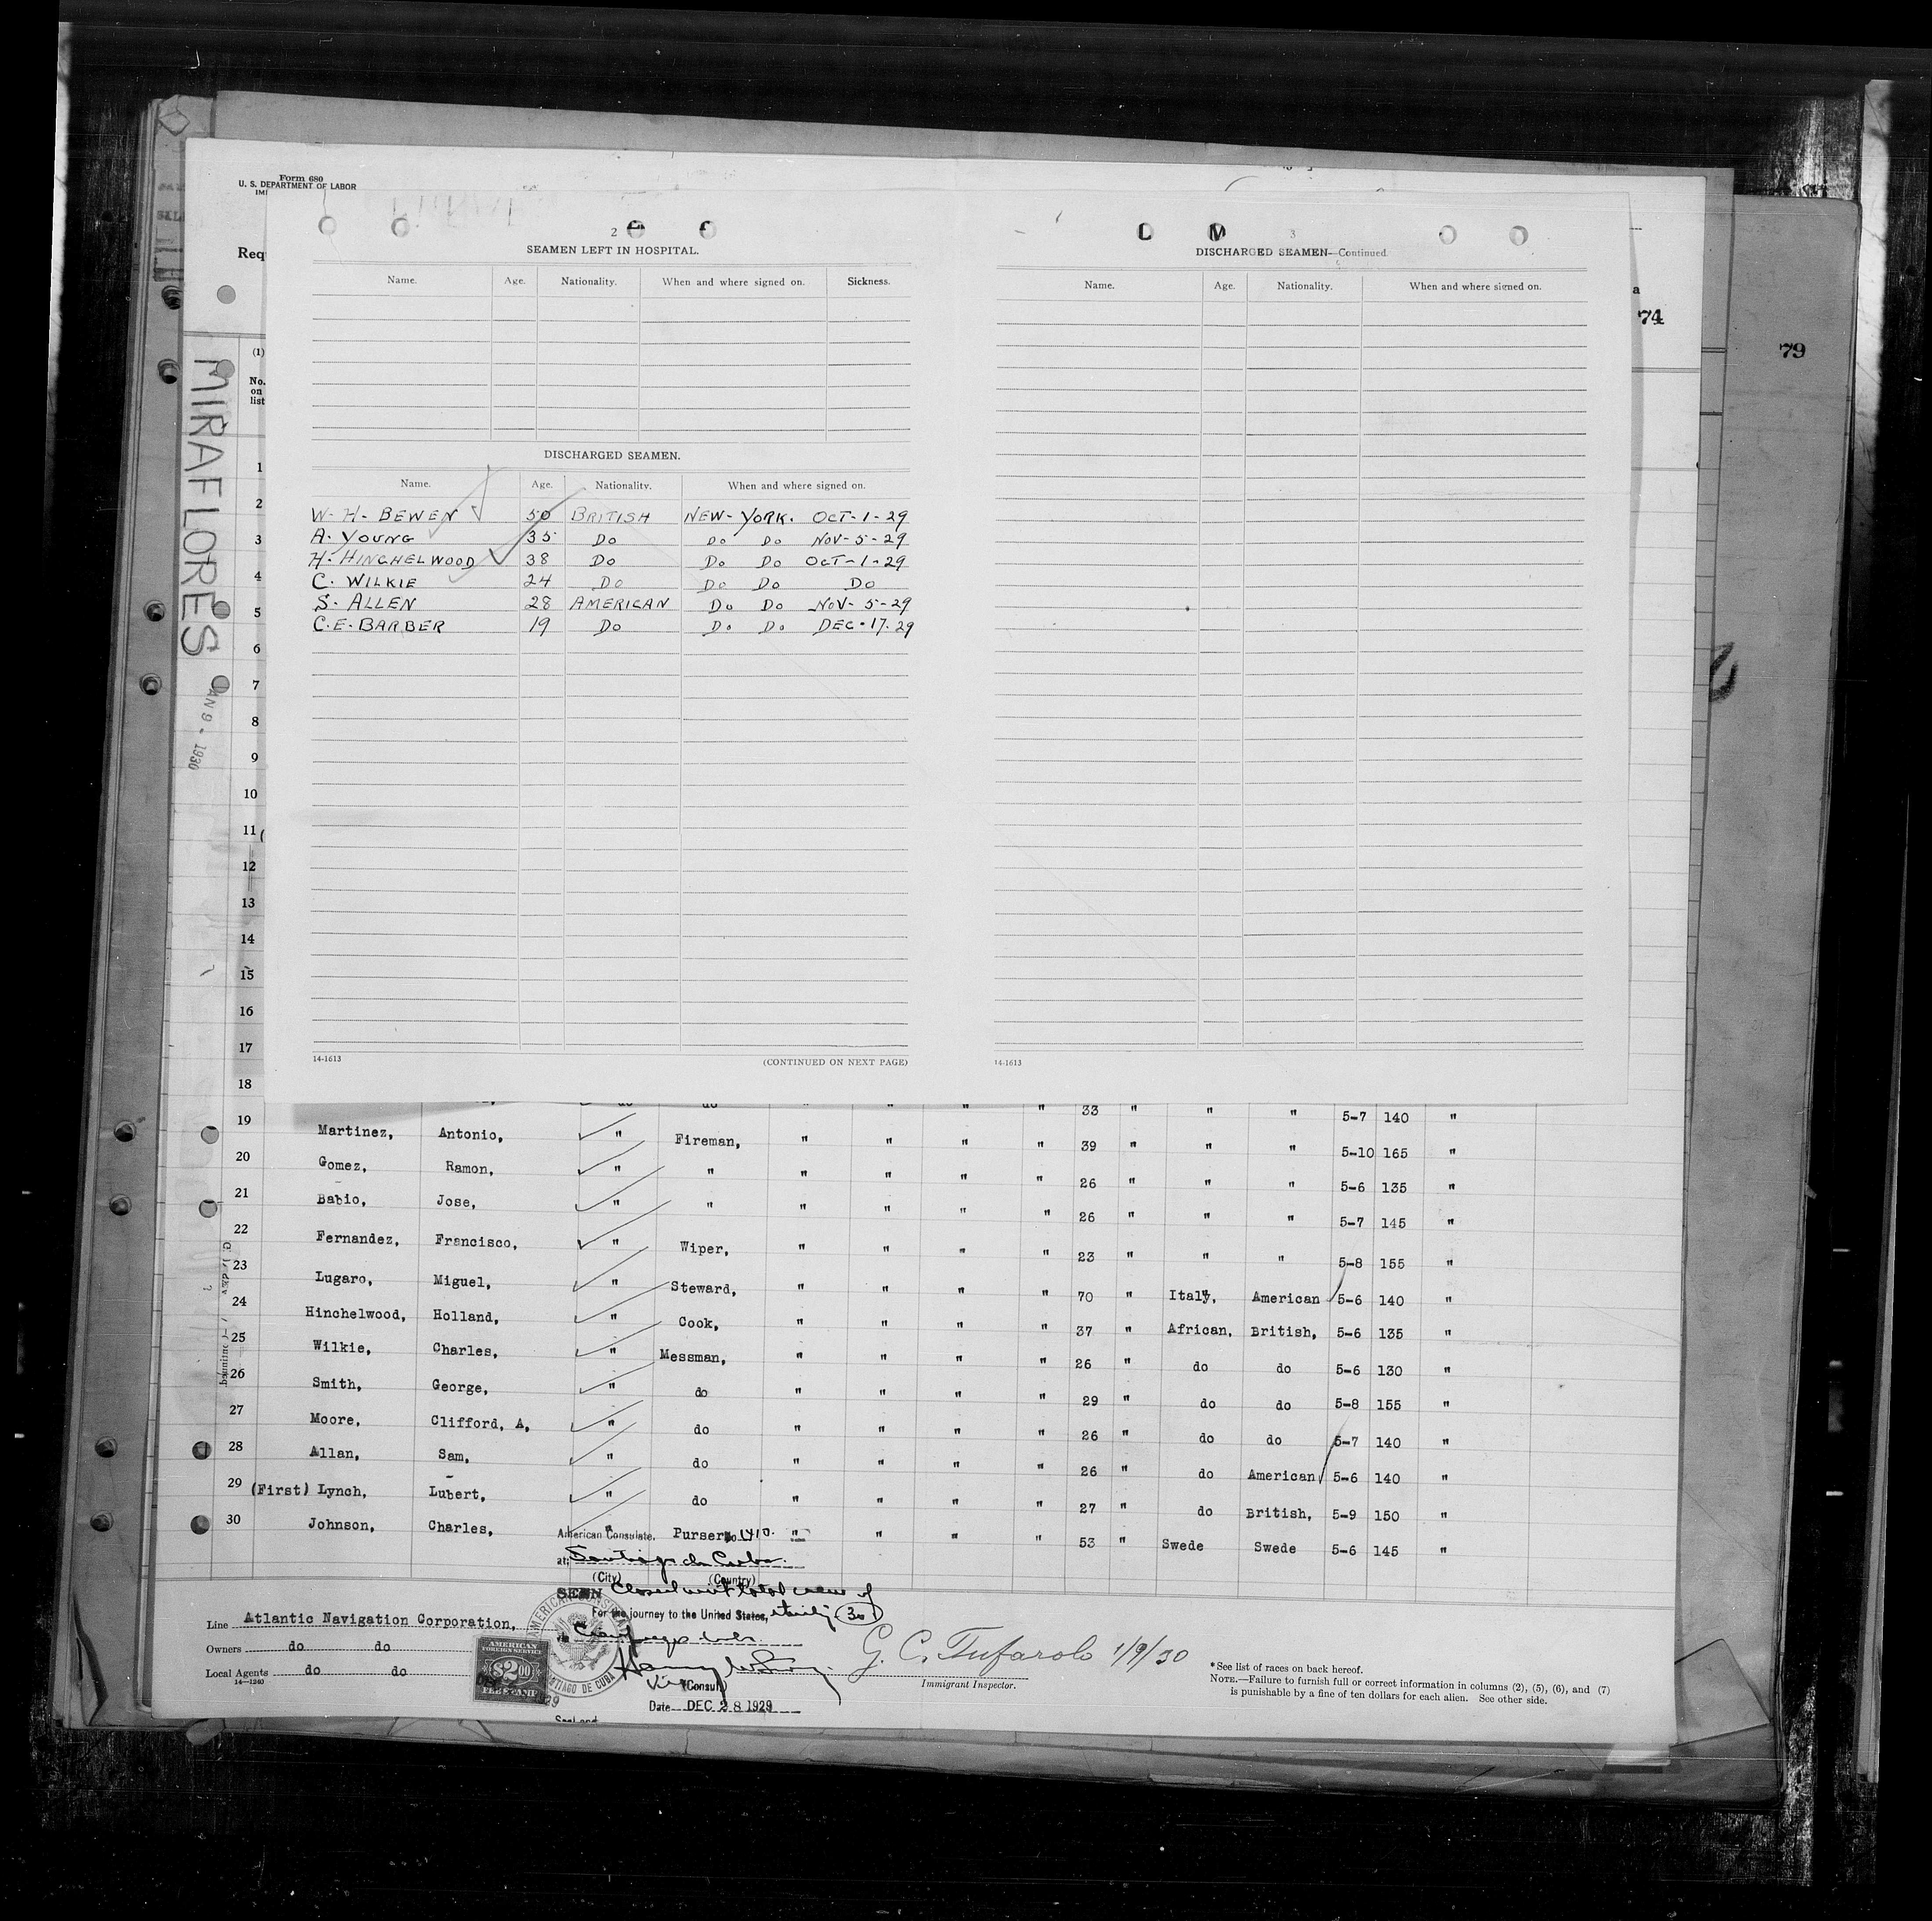 Form 680
U. S. DEPARTMENT OF LABOR
74
79
MIRAFLORES
1930
(1)
No.
on
list
2
SEAMEN LEFT IN HOSPITAL.
Name. Age. Nationality. When and where signed on. Sickness.
DISCHARGED SEAMEN.
Name. Age. Nationality. When and where signed on.
W. H. BEWEN 50 BRITISH NEW-YORK. OCT-1-29
A. YOUNG 35 Do Do Do NOV-5-29
H. HINCHELWOOD 38 Do Do Do OCT-1-29
C. WILKIE 24 Do Do Do Do
S. ALLEN 28 AMERICAN Do Do NOV-5-29
C.E. BARBER 19 Do Do Do DEC-17-29
14-1613 (CONTINUED ON NEXT PAGE)
3
DISCHARGED SEAMEN—Continued
Name. Age. Nationality. When and where signed on.
14-1613
1
2
3
4
5
6
7
8
9
10
11 (
12
13
14
15
16
17
18 do do " " " " 33 " " " 5-7 140 "
19 Martinez, Antonio, " Fireman, " " " " 39 " " " 5-10 165 "
20 Gomez, Ramon, " " " " " " 26 " " " 5-6 135 "
21 Babio, Jose, " " " " " " 26 " " " 5-7 145 "
22 Fernandez, Francisco, " Wiper, " " " " 23 " " " 5-8 155 "
23 Lugaro, Miguel, " Steward, " " " " 70 " Italy, American 5-6 140 "
24 Hinchelwood, Holland, " Cook, " " " " 37 " African, British, 5-6 135 "
25 Wilkie, Charles, " Messman, " " " " 26 " do do 5-6 130 "
26 Smith, George, " do " " " " 29 " do do 5-8 155 "
27 Moore, Clifford, A, " do " " " " 26 " do do 5-7 140 "
28 Allan, Sam, " do " " " " 26 " do American 5-6 140 "
29 (First) Lynch, Lubert, " do " " " " 27 " do British, 5-9 150 "
30 Johnson, Charles, " Purser " " " " 53 " Swede Swede 5-6 145 "
American Consulate, No. 1410.
at Santiago de Cuba.
(City) (Country)
SEEN Closed with total crew of
For the journey to the United States, thirty (30)
Line Atlantic Navigation Corporation,
Owners do do
Local Agents do do
14—1240
AMERICAN FOREIGN SERVICE $2.00 FEE STAMP
AMERICAN CONSULATE SANTIAGO DE CUBA
(Consul)
Date DEC 28 1929
G. C. Tufarolo 1/9/30
Immigrant Inspector.
*See list of races on back hereof.
NOTE.—Failure to furnish full or correct information in columns (2), (5), (6), and (7)
is punishable by a fine of ten dollars for each alien. See other side.